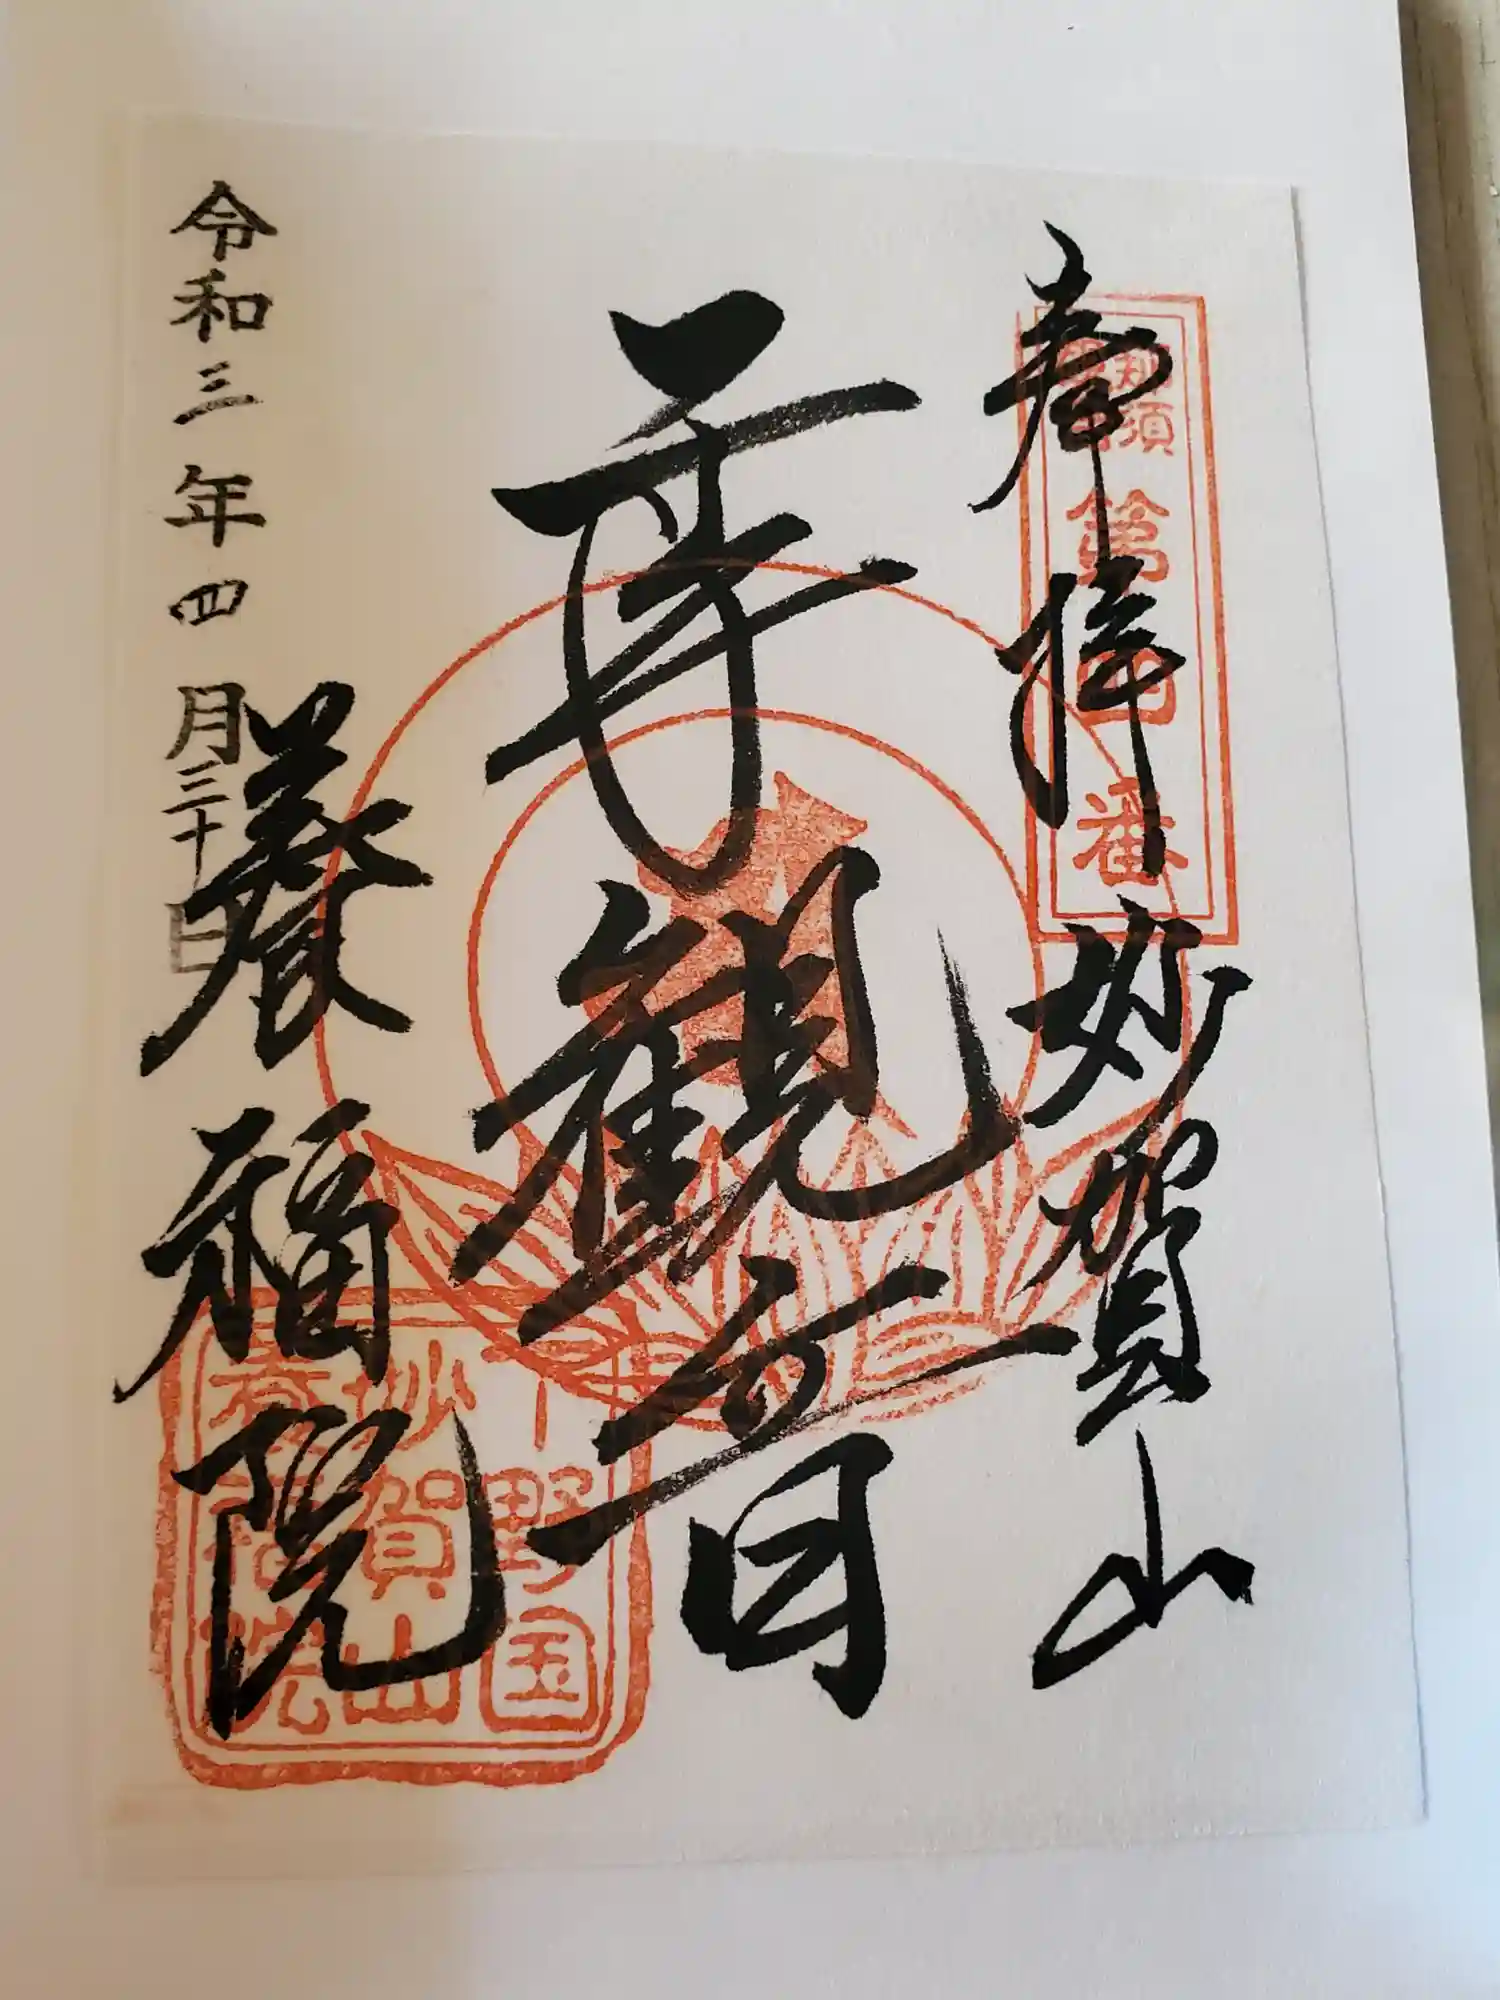 奉拝 妙賀山
那須
第四番
千手観音
令和三年四月三十日
養福院
下野国
妙賀山
養福院